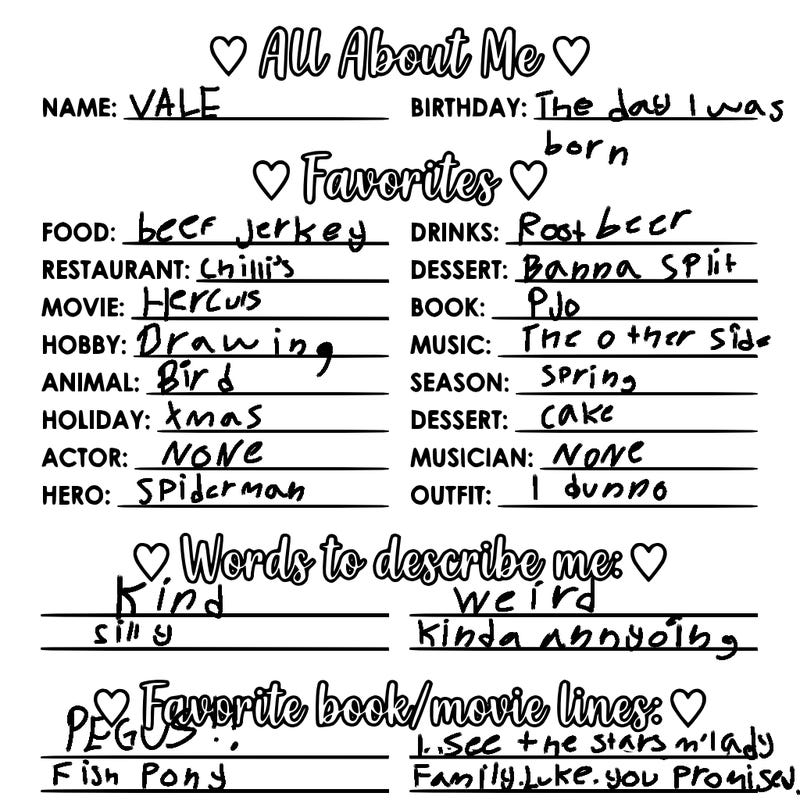 All About Me
NAME: VALE BIRTHDAY: The day I was
born
Favorites
FOOD: beef jerkey DRINKS: Root beer
RESTAURANT: Chilli's DESSERT: Banna split
MOVIE: Herculs BOOK: PJo
HOBBY: Drawing MUSIC: The other side
ANIMAL: Bird SEASON: spring
HOLIDAY: Xmas DESSERT: cake
ACTOR: NONE MUSICIAN: NONE
HERO: Spiderman OUTFIT: I dunno
Words to describe me:
Kind weird
silly kinda annyoing
Favorite book/movie lines:
PEGUS!! I..see the stars m'lady
Fish Pony Family.Luke.you promised.